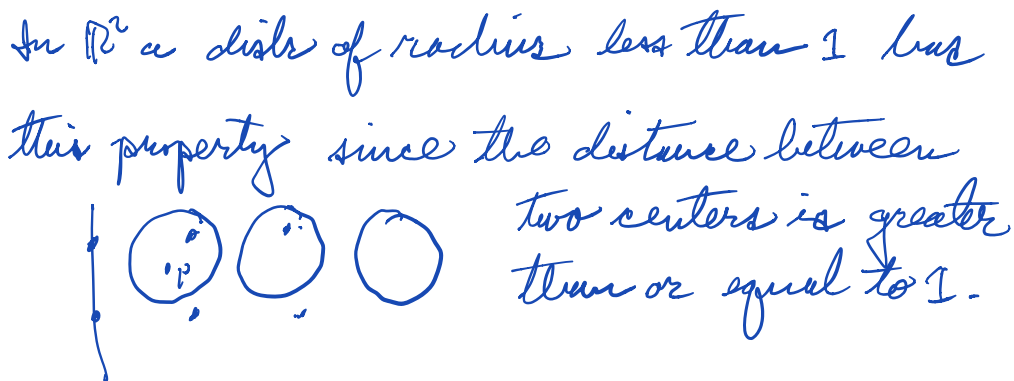 In ℝ² a disk of radius less than 1 has
this property since the distance between
two centers is greater
than or equal to 1.
p